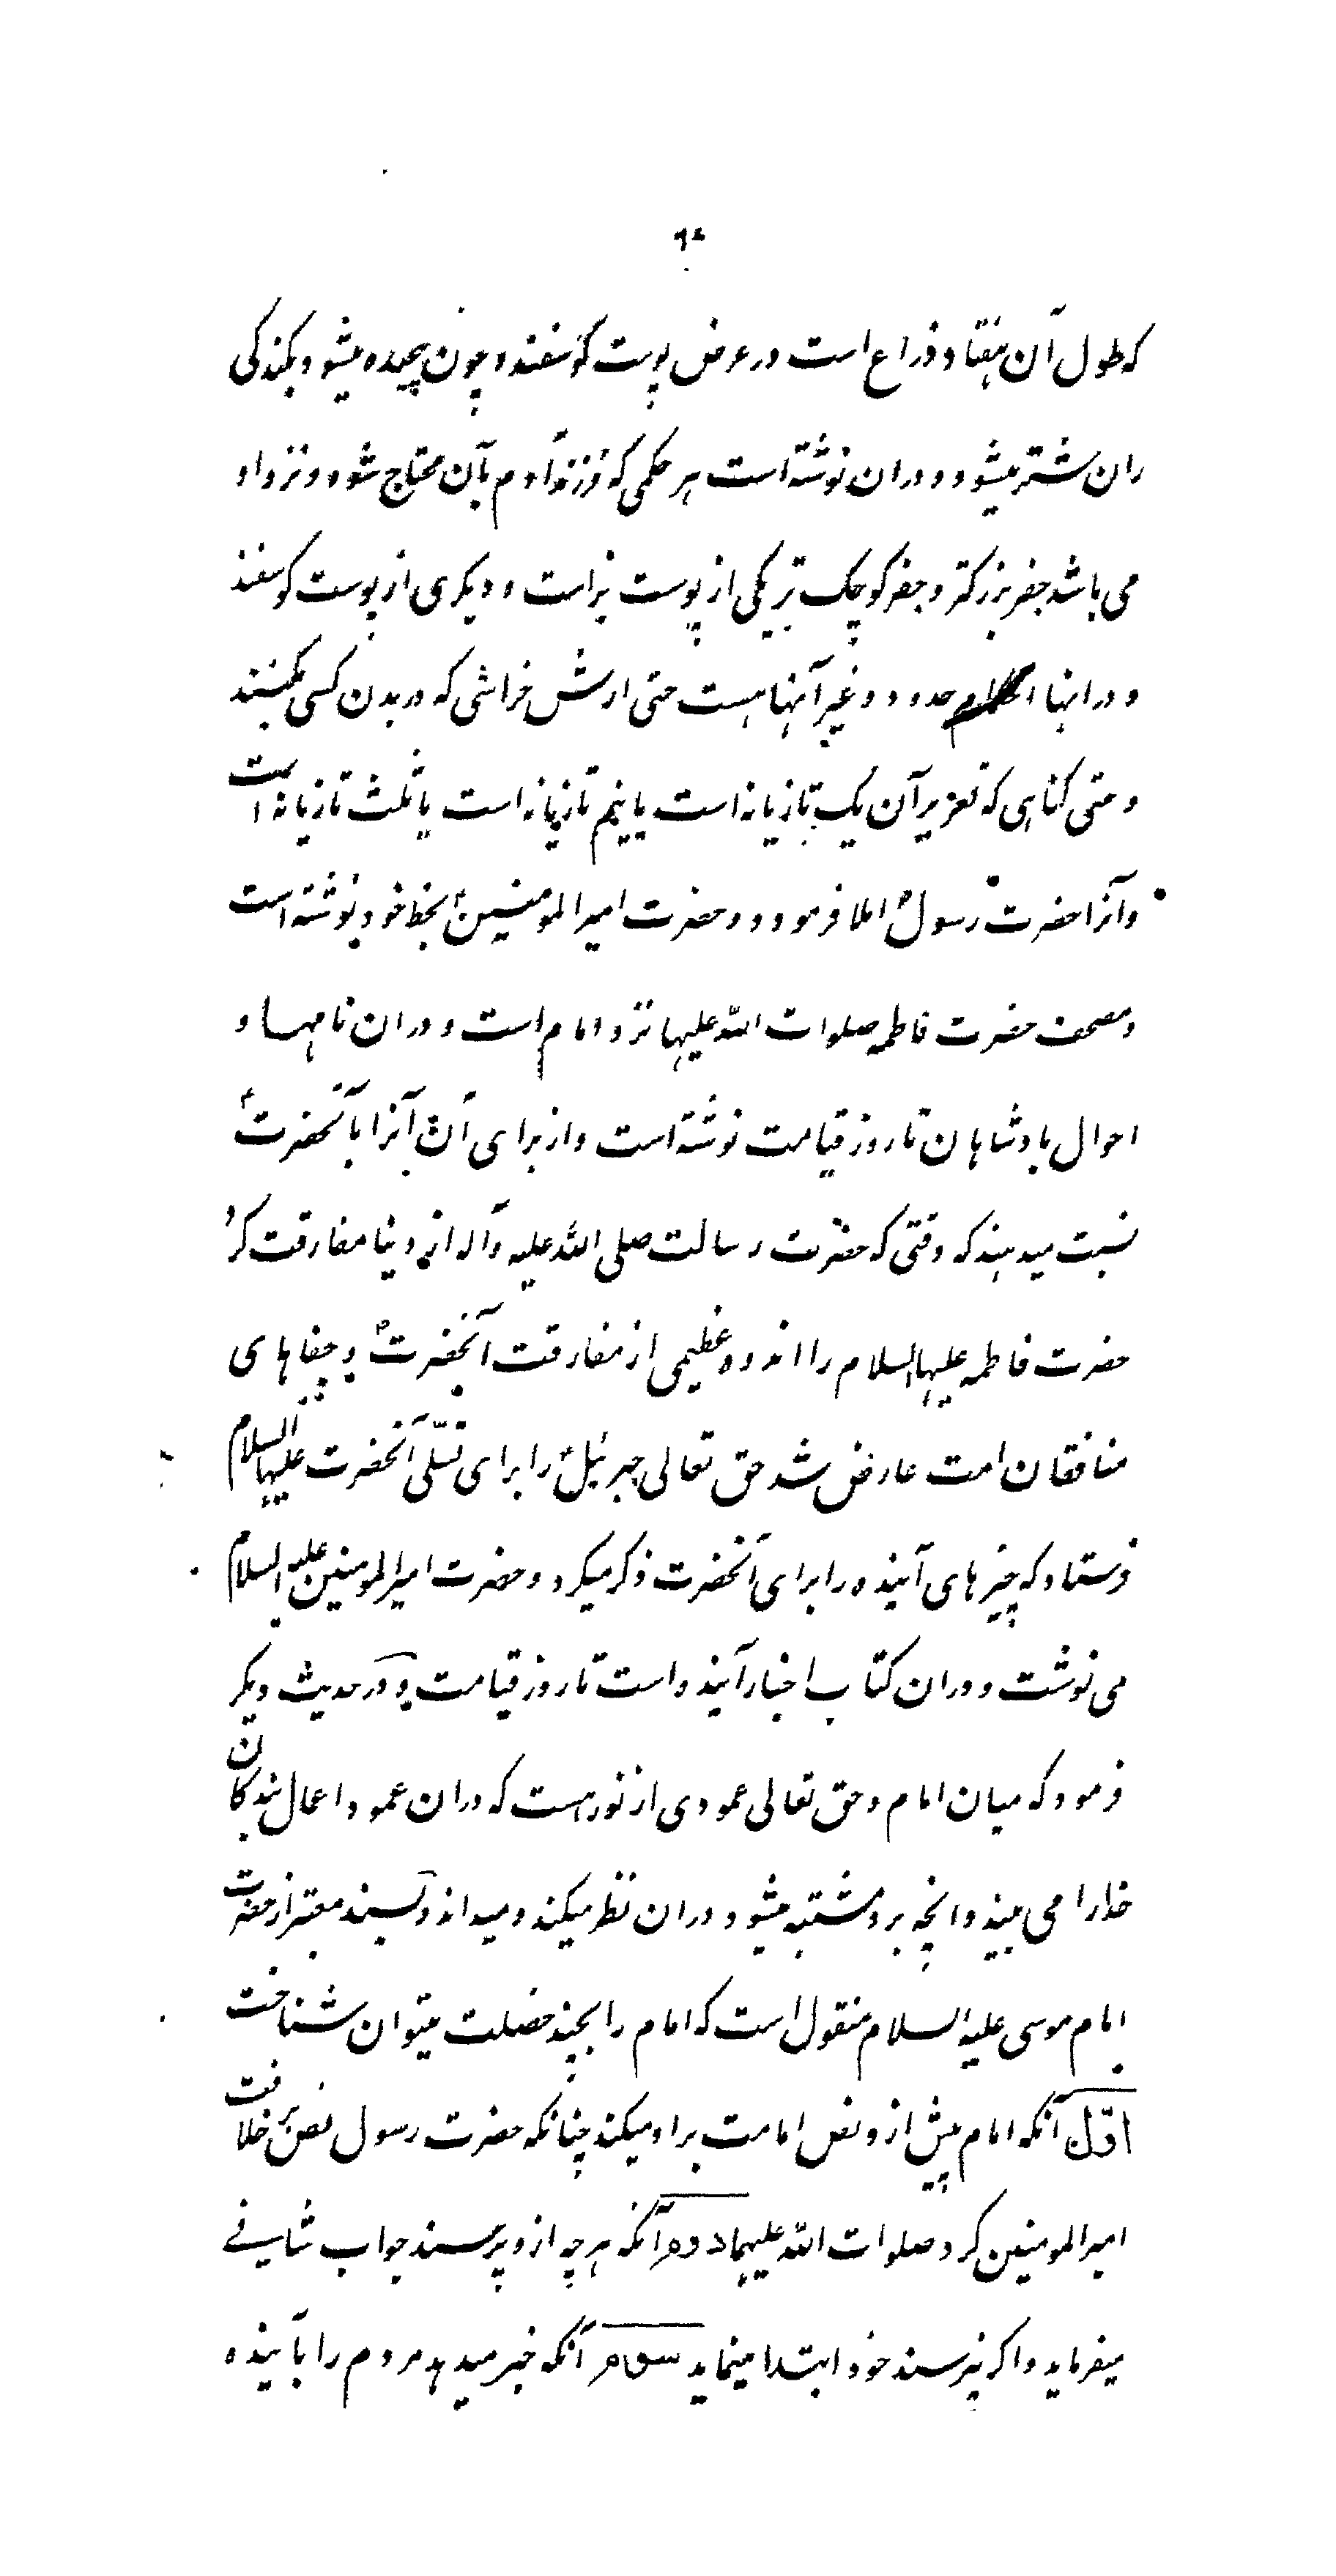 ٩٤
که طول آن هفتاد ذراع است در عرض پوست گوسفند و چون پیچیده میشود بکندکی
ران شتر میشود و دران نوشته است هر حکمی که فرزند آدم بآن محتاج شود و نزد او
می باشد جفر بزرکتر و جفر کوچک تر یکی از پوست بز است و دیکری از پوست کوسفند
و در اینها احکام حدود و غیر آنها هست حتی ارش خراشی که در بدن کسی بکنند
و حتی کناهی که تعزیر آن یک تازیانه است یا نیم تازیانه است یا ثلث تازیانه است
و آنرا حضرت رسول ص املا فرموده و حضرت امیر المومنین ع بخط خود نوشته است
و مصحف حضرت فاطمه صلوات الله علیها نزد امام است و دران نامها و
احوال پادشاهان تا روز قیامت نوشته است و از برای آن آنرا بآنحضرت ع
نسبت میدهند که وقتی که حضرت رسالت صلی الله علیه وآله از دنیا مفارقت کرد
حضرت فاطمه علیها السلام را اندوه عظیمی از مفارقت آنحضرت ص و جفاهای
منافقان امت عارض شد حق تعالی جبرئیل ع را برای تسلّی آنحضرت علیها السلام
فرستاد که چیزهای آینده را برای آنحضرت ذکر میکرد و حضرت امیر المومنین علیه السلام
می نوشت و دران کتاب اخبار آینده است تا روز قیامت و در حدیث دیکر
فرمود که میان امام و حق تعالی عمودی از نور هست که دران عمود اعمال بندکان
خدا را می بیند و انچه برو مشتبه میشود دران نظر میکند و میداند و بسند معتبر از حضرت
امام موسی علیه السلام منقول است که امام را بچند خصلت میتوان شناخت
اوّل آنکه امام پیش از و نص امامت بر او میکند چنانکه حضرت رسول نص بر خلافت
امیر المومنین کرد صلوات الله علیهما دوم آنکه هرچه ازو پرسند جواب شافی
میفرماید و اکر نپرسند خود ابتدا مینماید سوم آنکه خبر میدهد مردم را بآینده